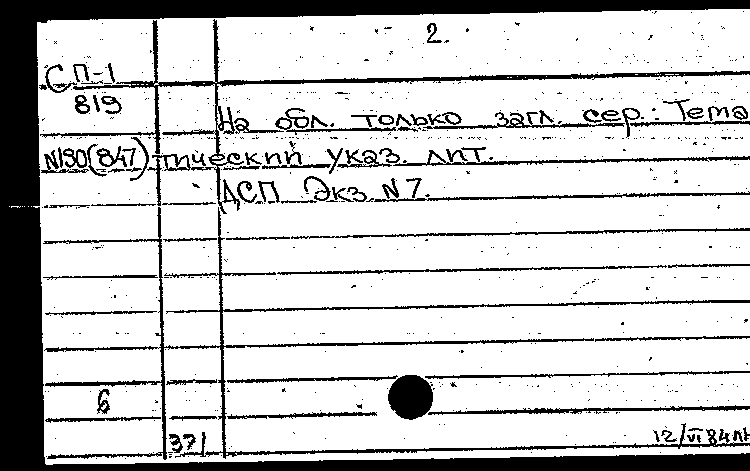 2.
СП-1
819
На обл. только загл. сер.: Тема
N190(847) тический указ. лит.
ДСП Экз. N 7.
6
371
12/VI 84